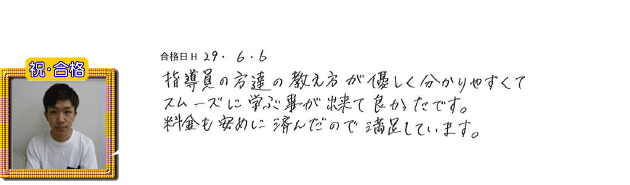 祝・合格
合格日 H 29. 6. 6
指導員の方達の教え方が優しく分かりやすくて
スムーズに学ぶ事が出来て良かったです。
料金も安めに済んだので満足しています。